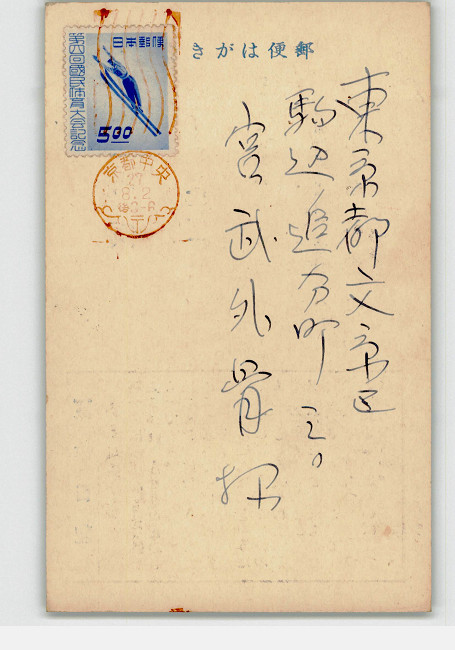 郵便はがき
東京都文京区
駒込追分町三〇
宮武外骨様
日本郵便
第六回國民体育大会記念
5.00
京都中央
27
8.2